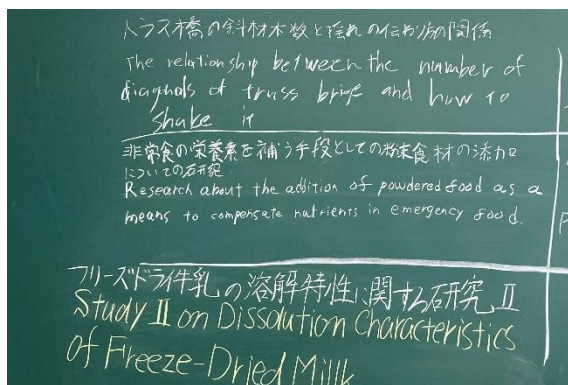 トラス橋の斜材本数と揺れの伝わり方の関係
The relationship between the number of
diagnols of truss brige and how to
shake it
非常食の栄養素を補う手段としての粉末食材の添加
についての研究
Research about the addition of powdered food as a
means to compensate nutrients in emergency food.
フリーズドライ牛乳の溶解特性に関する研究 II
Study II on Dissolution Characteristics
of Freeze-Dried Millk